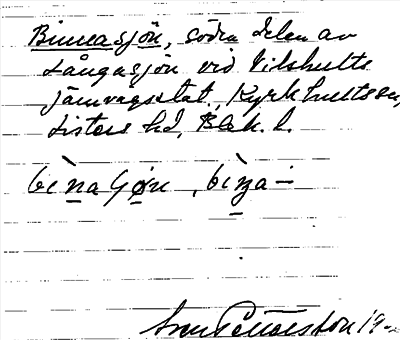 Binnasjön, södra delen av
Långasjön vid Vilshults
järnvägsstat. Kyrkhults sn,
Listers hd, Blek. l.
Sven Petersson 19